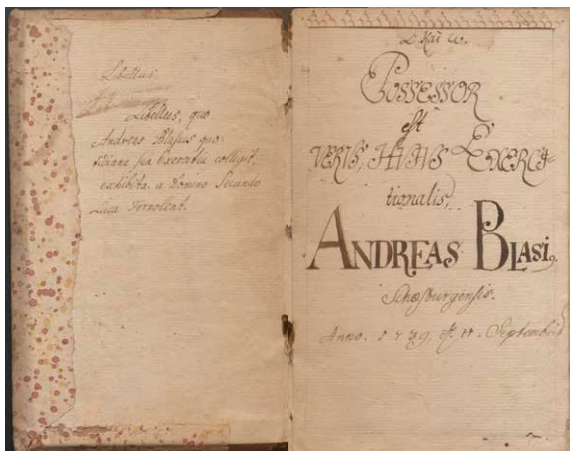 Libellus.
Libellus, quo
Andreas Blasius quo-
tidiana sua exercitia colligit,
exhibita a Domino Secundo
Luca
POSSESSOR
est
VERIS, HUIUS EXERCI=
tionalis,
ANDREAS BLASI,
Schæsburgensis.
Anno. 1739, d. 11. Septembris